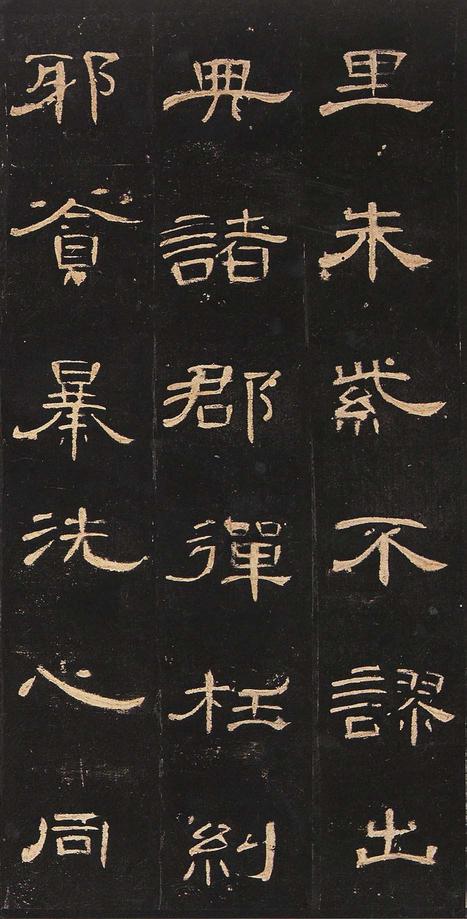 里朱紫不謬出
典諸郡彈枉糾
耶貪暴洗心同